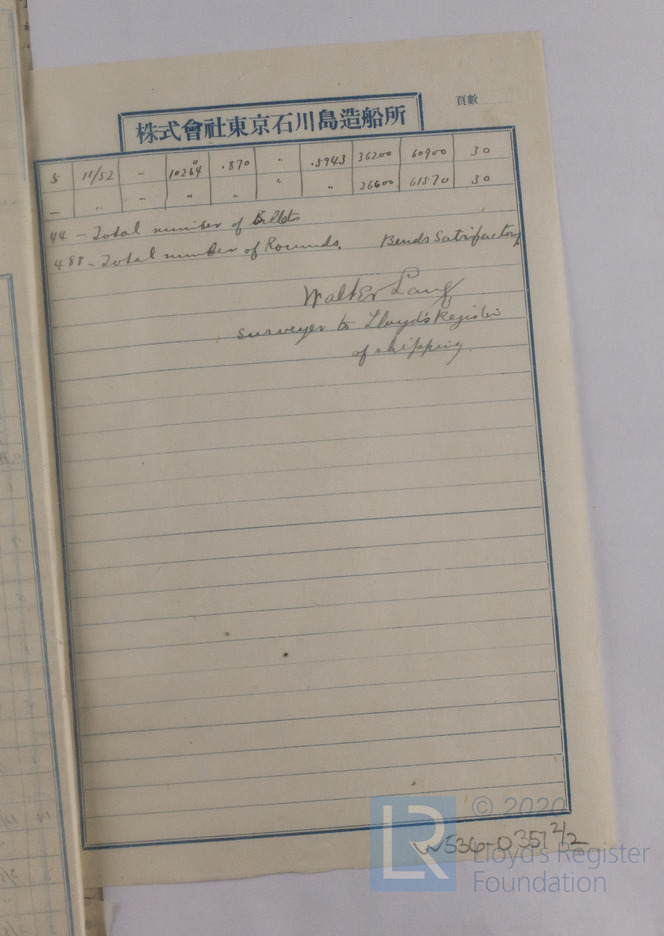 頁數
株式會社東京石川島造船所
5 11/52 - 10264 .870 " .5943 36200 60900 30
- " - " " " " 36600 61570 30
44 - Total number of Billets
488 - Total number of Rounds. Bends Satisfactory
Walter Lang
surveyor to Lloyd's Register
of shipping.
LR © 2020
W536-0351 2/2
Lloyd's Register
Foundation